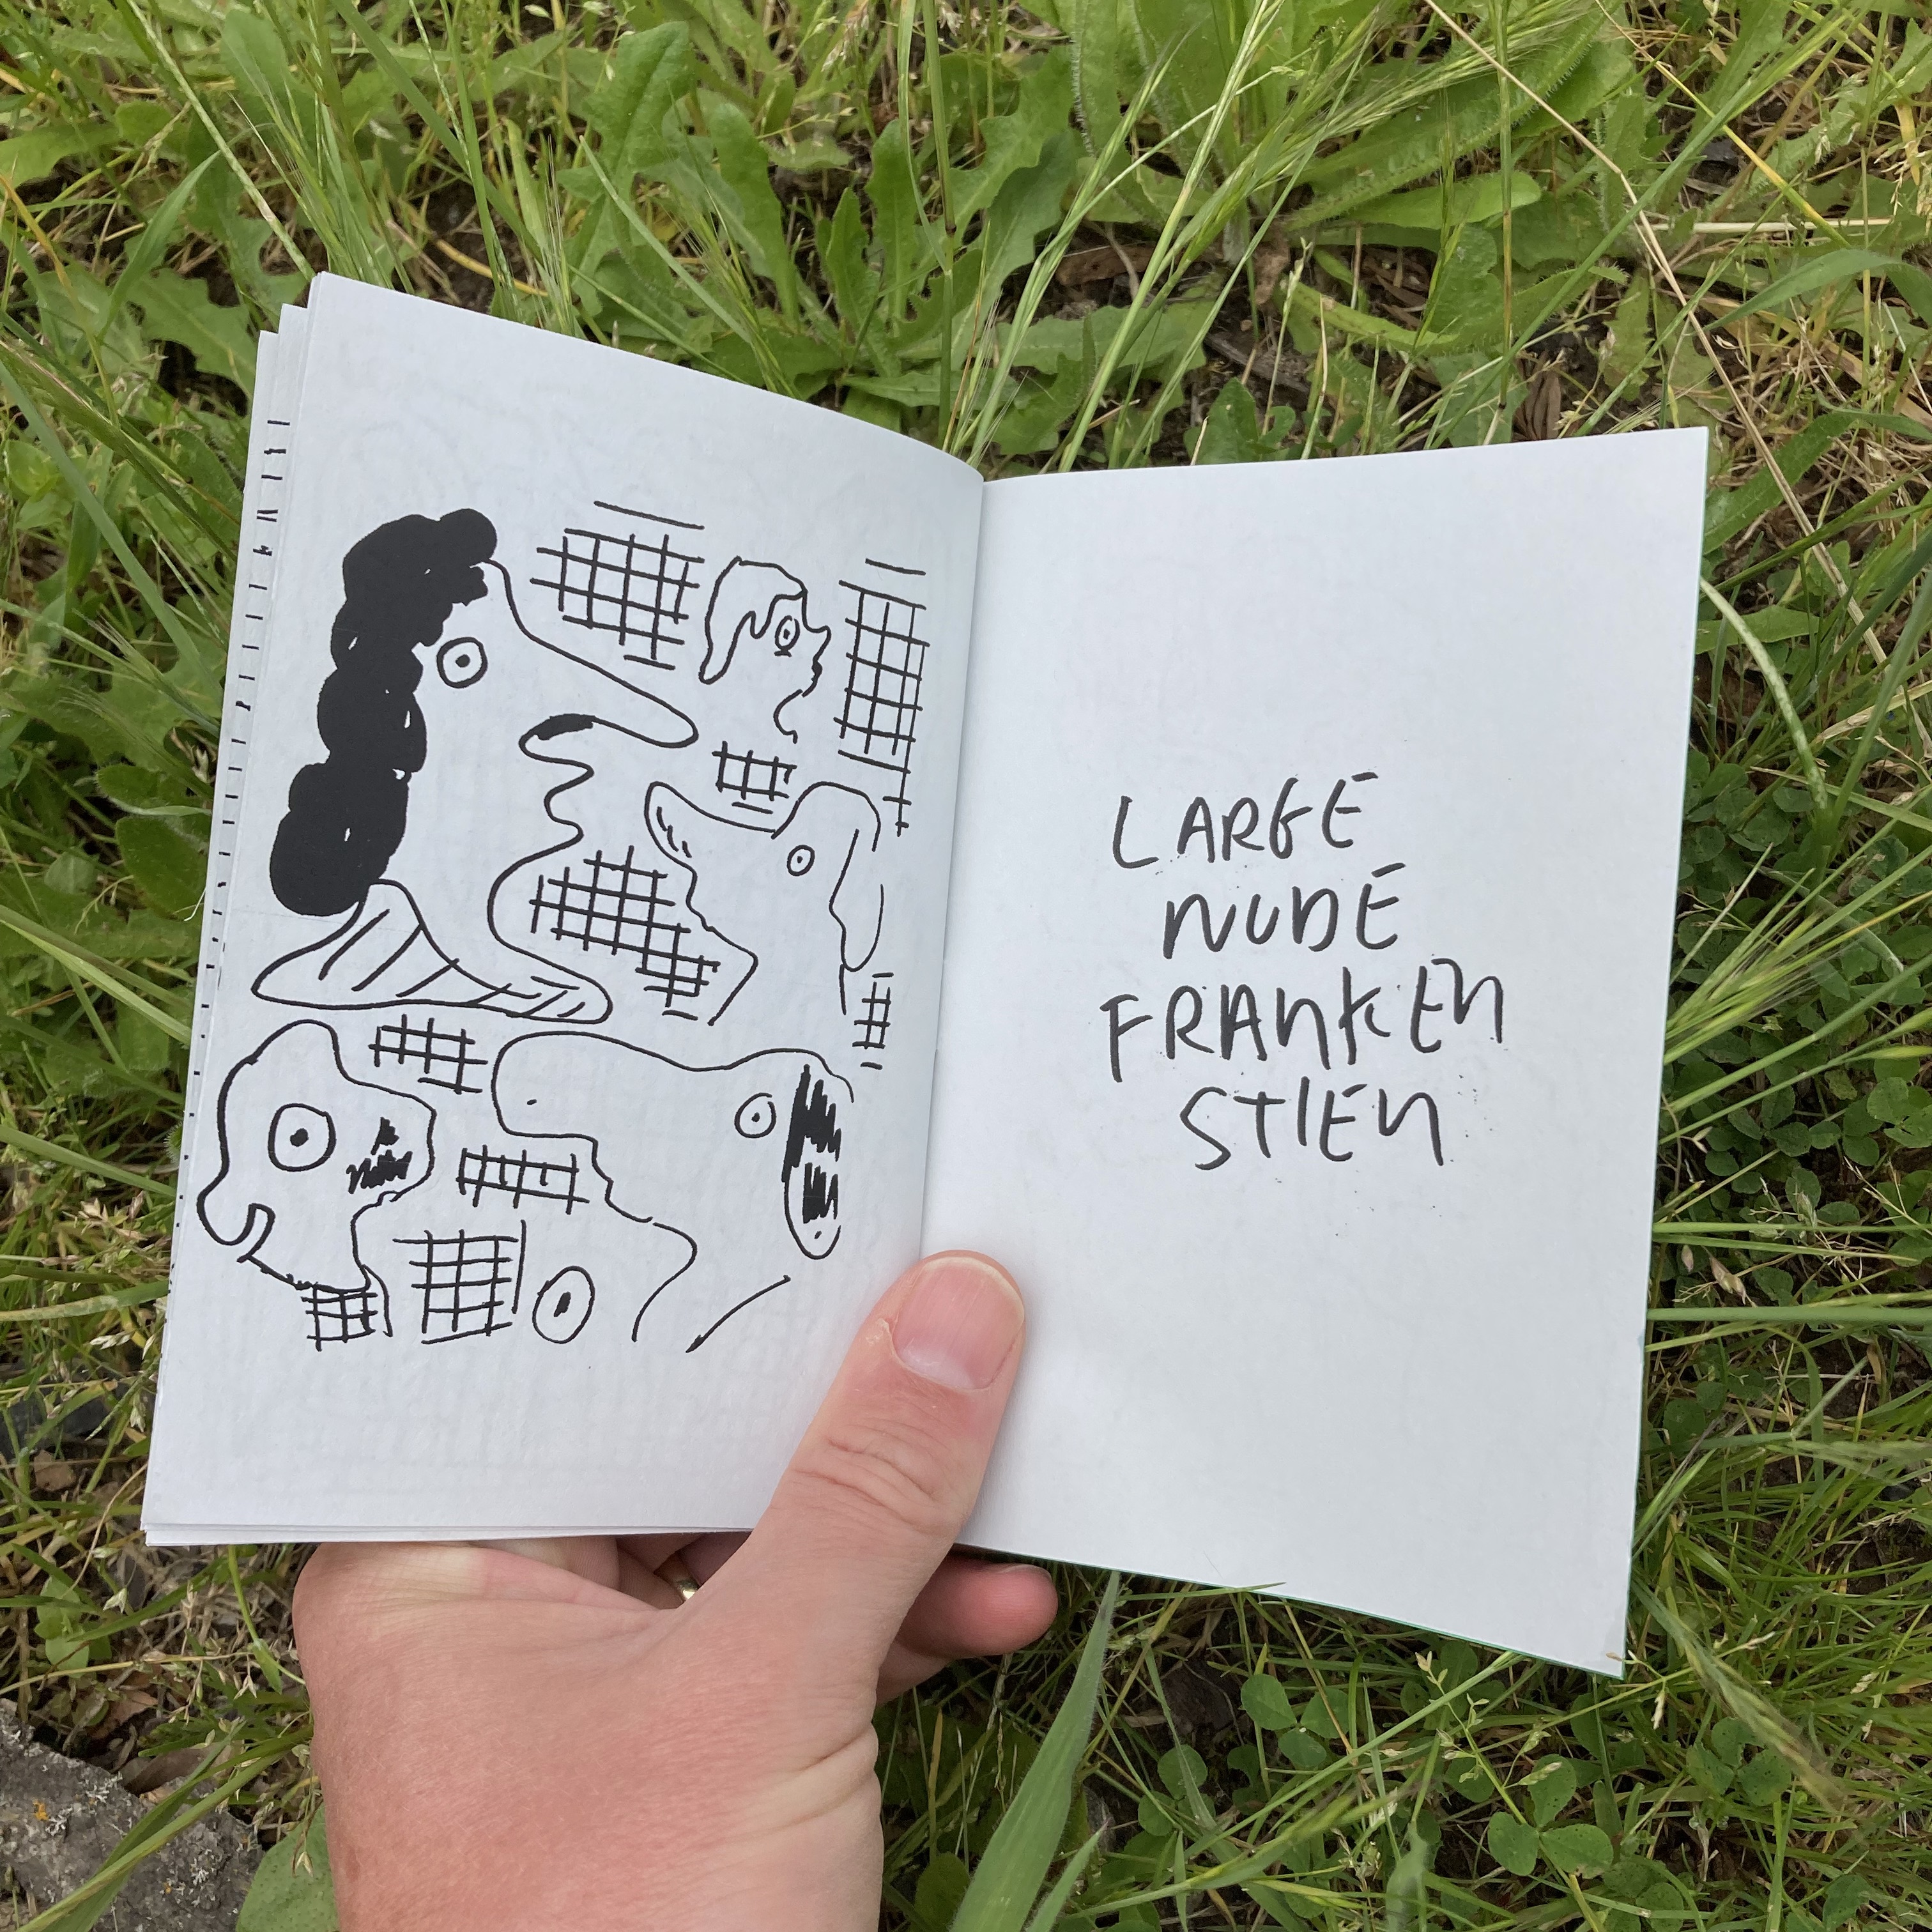 LARGE
NUDE
FRANKEN
STIEN